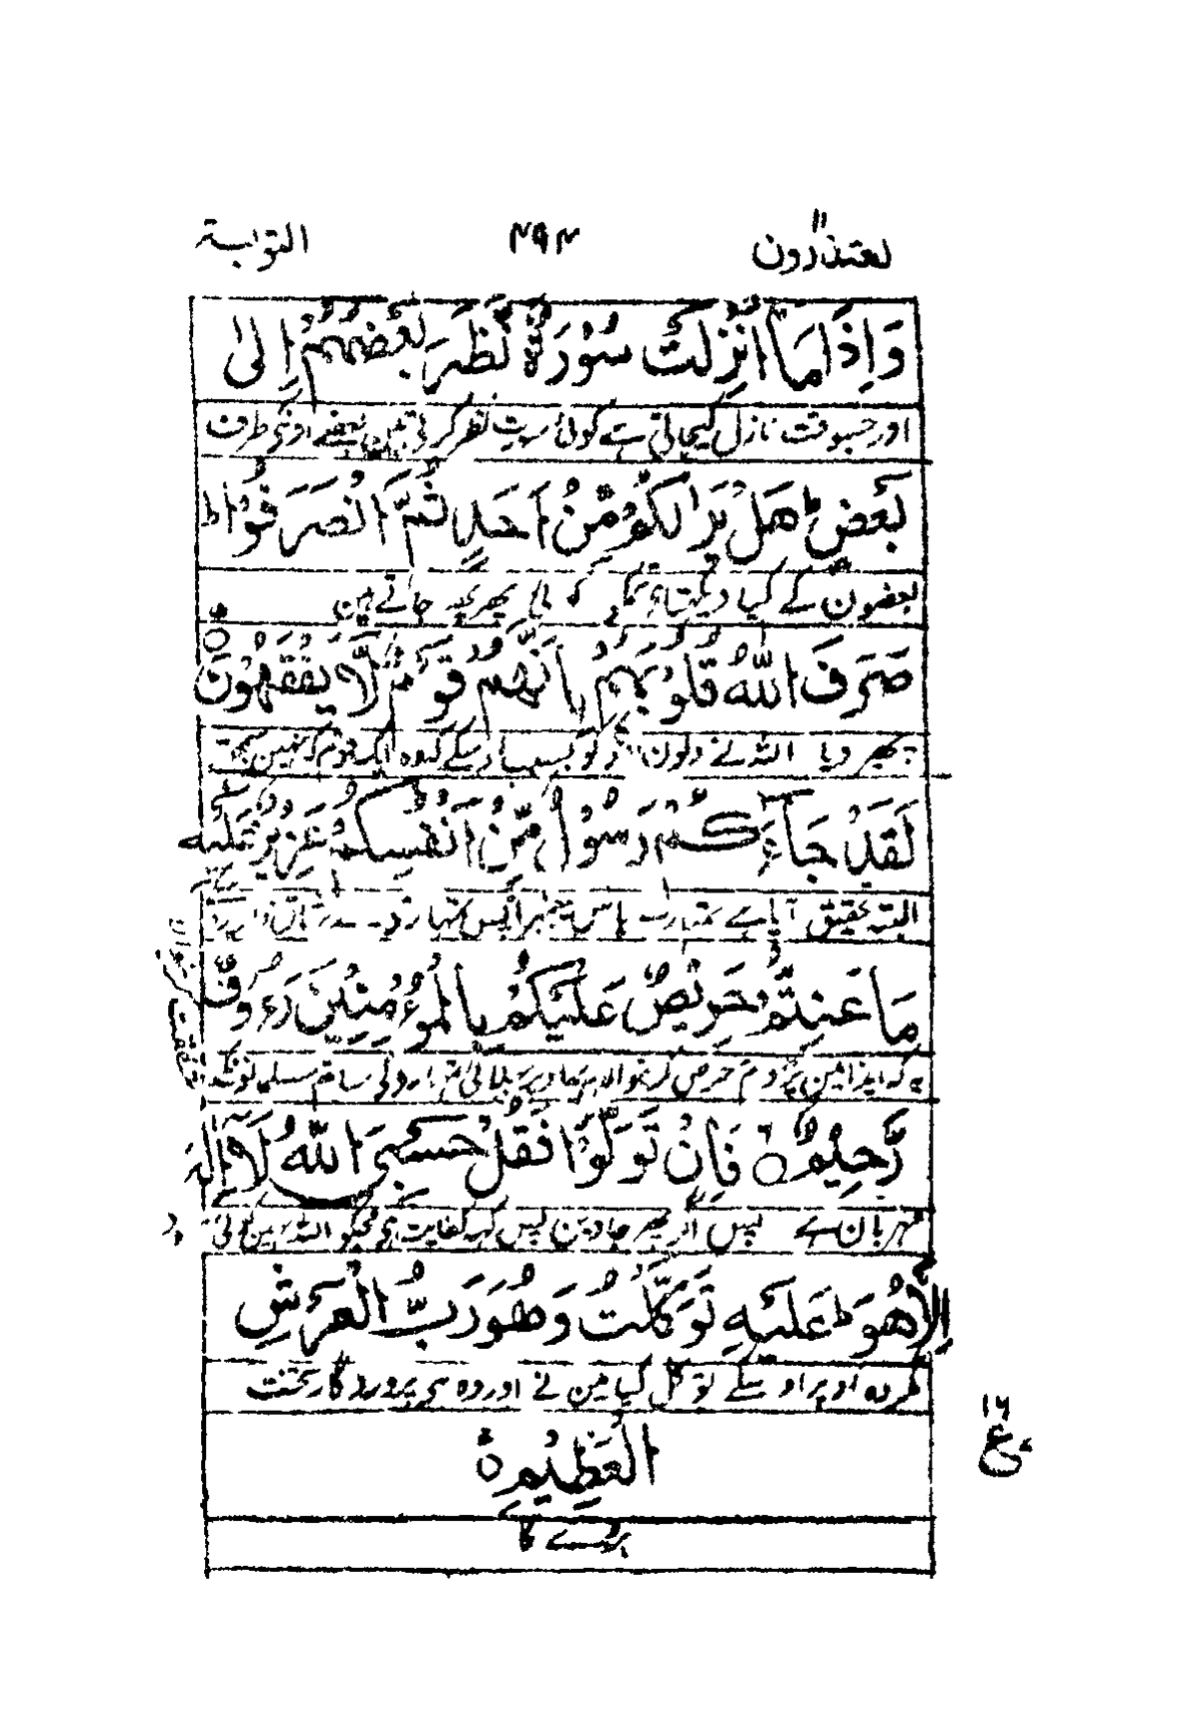 یعتذرون ۱۱ ۲۹۴ التوابۃ
وَاِذَا مَاۤ اُنْزِلَتْ سُوْرَةٌ نَّظَرَ بَعْضُهُمْ اِلٰى
اور جسوقت نازل کیجاتی ہے کوئی سورت نظر کرتے ہین بعضے اونکی طرف
بَعْضٍ ؕ هَلْ يَرٰىكُمْ مِّنْ اَحَدٍ ثُمَّ انْصَرَفُوْا ؕ
بعضون کے کیا دیکھتا ہے تمکو کوئی پھر پھر جاتے ہین
صَرَفَ اللّٰهُ قُلُوْبَهُمْ بِاَنَّهُمْ قَوْمٌ لَّا يَفْقَهُوْنَ ۝
پھیر دیا اللہ نے دلون کو بسبب اسکے کہ وہ ایک قوم کہ نہین سمجھتے
لَقَدْ جَآءَكُمْ رَسُوْلٌ مِّنْ اَنْفُسِكُمْ عَزِيْزٌ عَلَيْهِ
البتہ تحقیق آیا ہے تمہارے پاس پیغمبر آپس تمہارے
مَا عَنِتُّمْ حَرِيْصٌ عَلَيْكُمْ بِالْمُؤْمِنِيْنَ رَءُوْفٌ
یہ کہ ایذا مین پڑو تم حرص کرنیوالا ہے اوپر بھلائی تمہاری ساتھ مسلمانونکے
رَّحِيْمٌ ۝ فَاِنْ تَوَلَّوْا فَقُلْ حَسْبِيَ اللّٰهُ لَاۤ اِلٰهَ
مہربان ہے پس اگر پھر جاوین پس کہہ کفایت ہے مجھکو اللہ نہین کوئی
اِلَّا هُوَ ؕ عَلَيْهِ تَوَكَّلْتُ وَهُوَ رَبُّ الْعَرْشِ
مگر وہ اوپر اوسکے توکل کیا مین نے اور وہ ہے پروردگار تخت
الْعَظِيْمِ ۝
بڑے کا
۱۶
ع